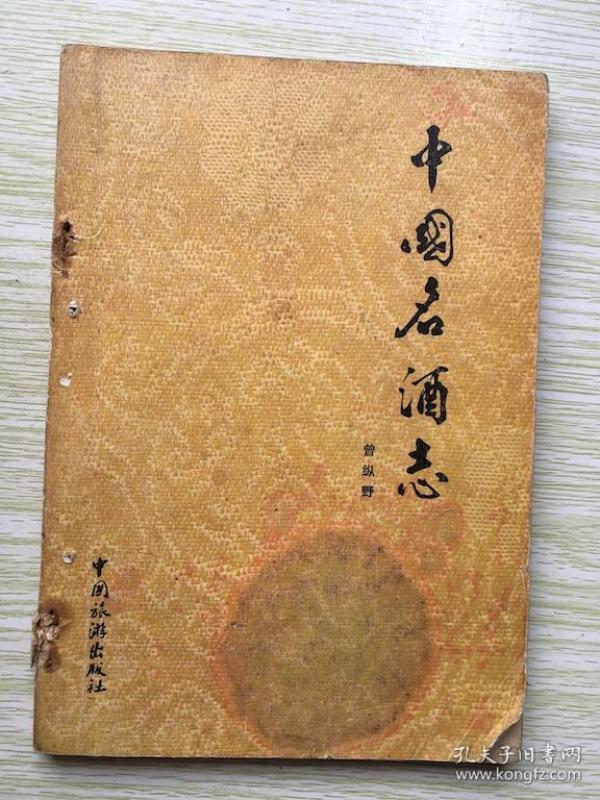 中國名酒志
曾纵野
中国旅游出版社
孔夫子旧书网
www.kongfz.com